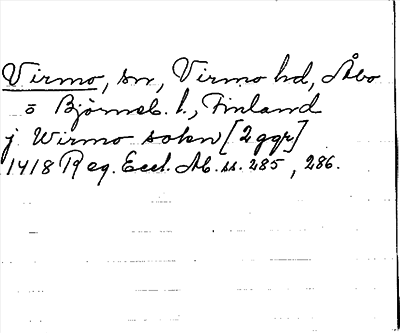 Virmo, sn, Virmo hd, Åbo
o Björneb. l., Finland
j Wirmo sokn [2 ggr]
1418 Reg. Eccl. Ab. ss. 285, 286.